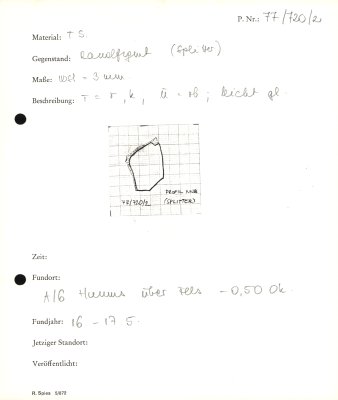 P. Nr.: 77/720/2
Material: TS
Gegenstand: Randfrgmt (Splitter)
Maße: - 3 mm
Beschreibung: T = r, k, Ü = rb; leicht gl.
77/720/2
PROFIL
(SPLITTER)
Zeit:
Fundort:
A/6 Humus über Fels - 0,50 Ok.
Fundjahr: 16 - 17 5.
Jetziger Standort:
Veröffentlicht:
R. Spies 5/672